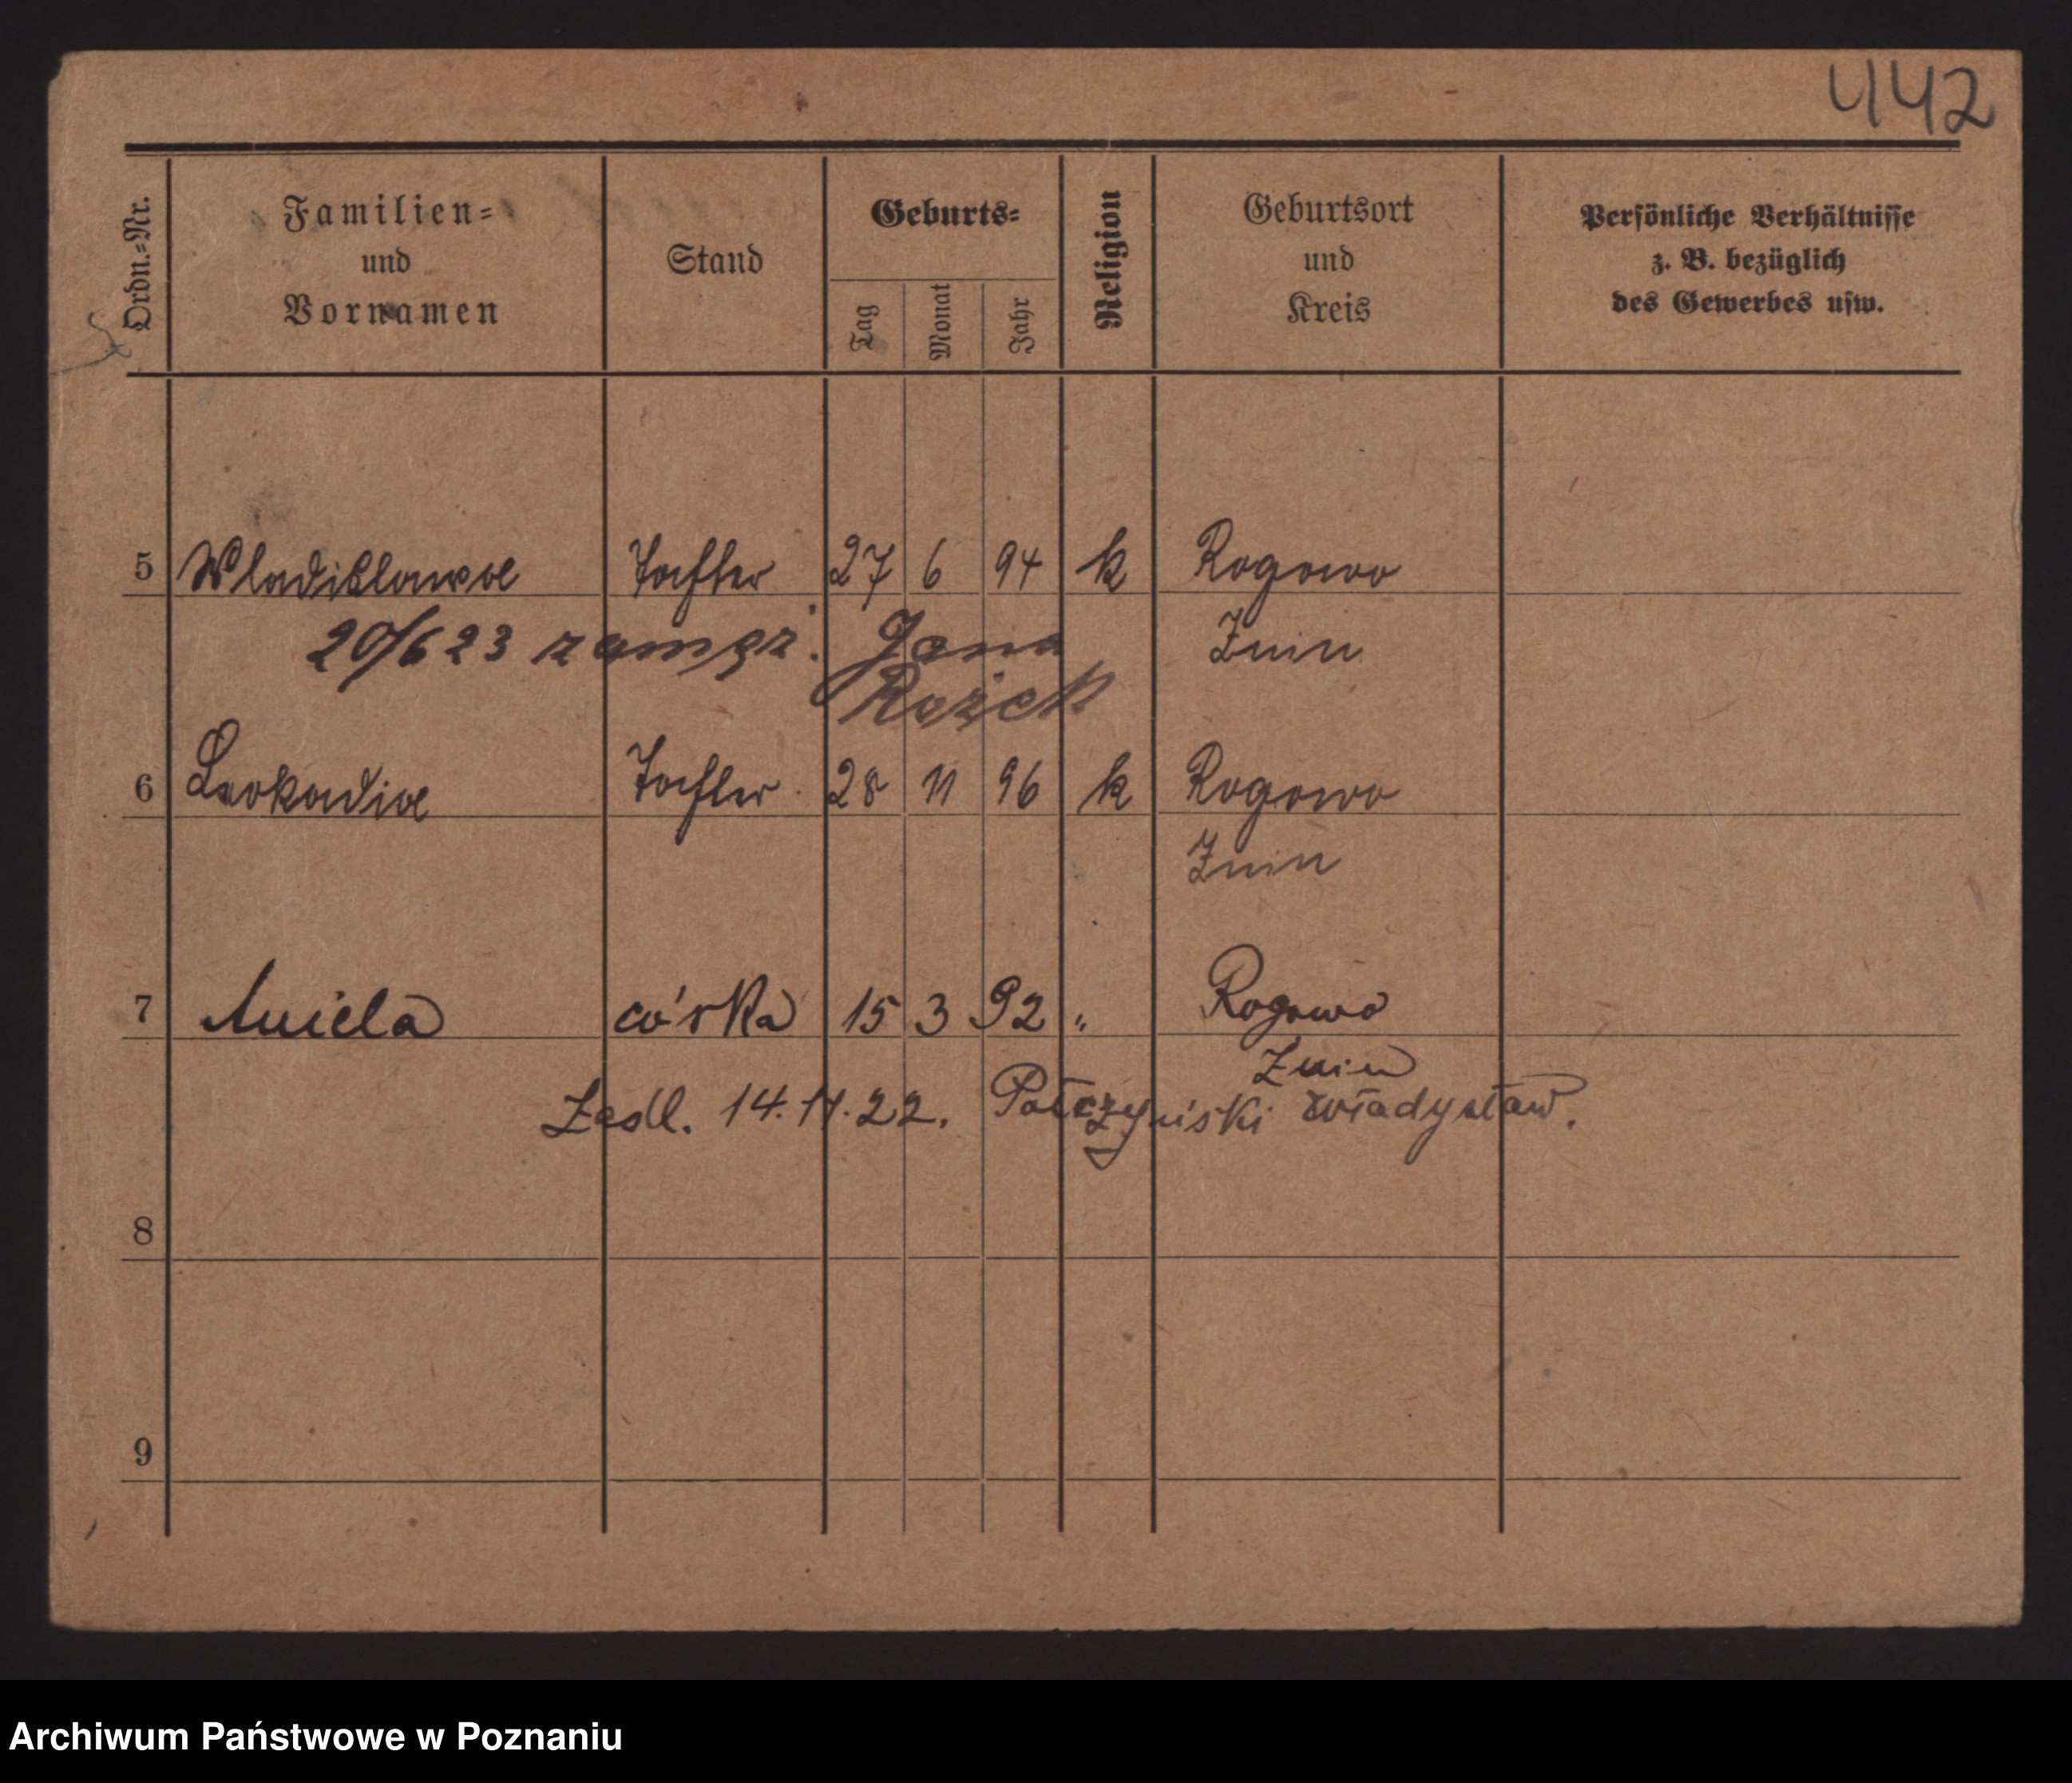 442
Ordn.=Nr.
Familien=
und
Vornamen
Stand
Geburts=
Tag
Monat
Jahr
Religion
Geburtsort
und
Kreis
Persönliche Verhältnisse
z. B. bezüglich
des Gewerbes usw.
5 Wladislawa Tochter 27 6 94 k Rogowo
Znin
20/6 23 zamęż. Jana
Rożek
6 Leokadia Tochter 28 11 96 k Rogowo
Znin
7 Aniela córka 15 3 92 " Rogowo
Znin
14.11.22. Połczyński Władysław.
8
9
Archiwum Państwowe w Poznaniu